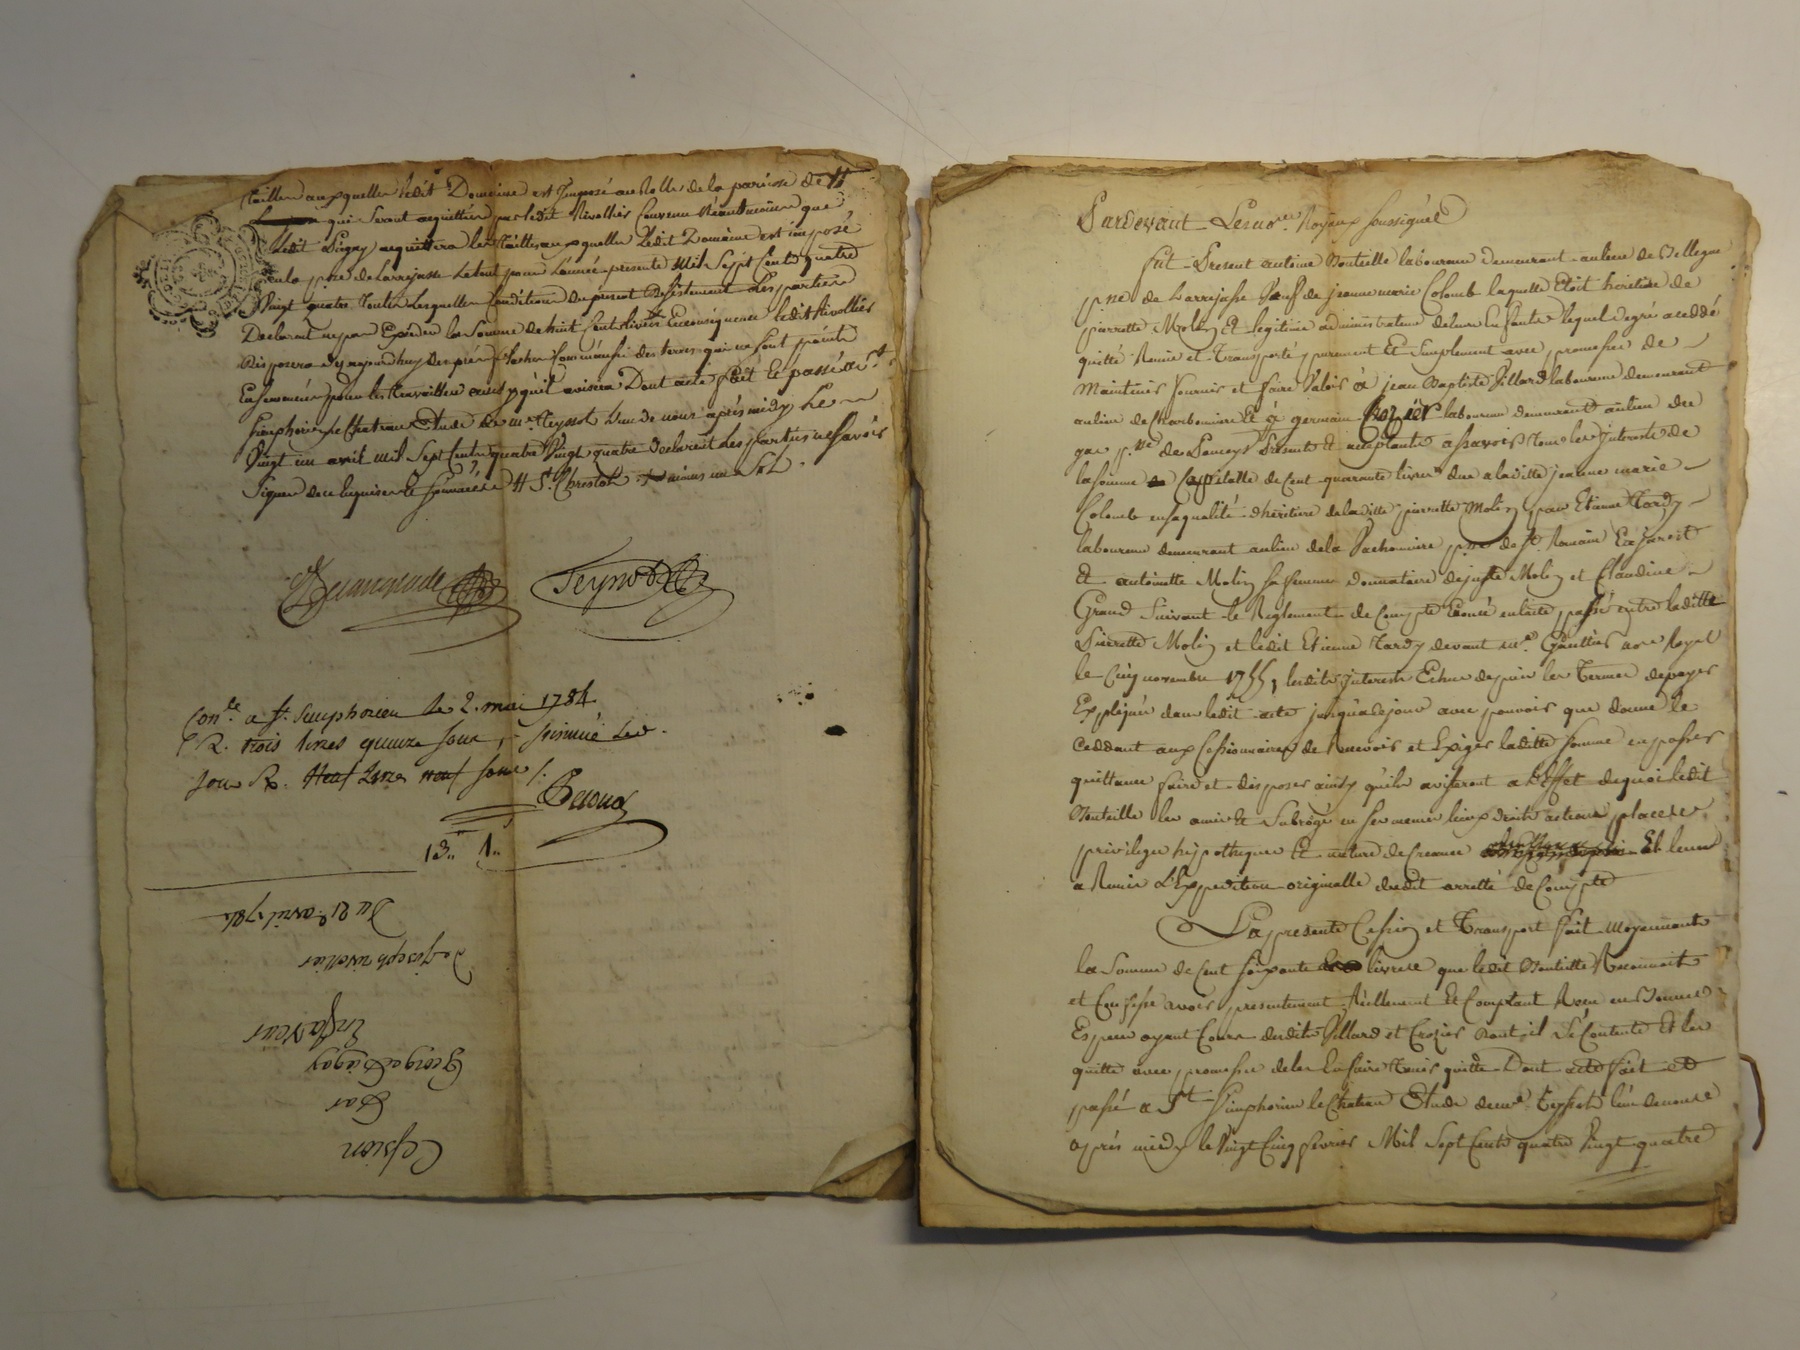 tailles auxquelles ledit Domaine est Imposé au Rolle de la paroisse de #
qui seront acquittées par ledit Rivollier Convenu Néantmoins que
ledit Pigay acquittera les tailles auxquelles ledit Domaine est imposé
en la psse de Larrajasse le tout pour l'année presente Mil Sept Cents quatre
Vingt quatre toutes lesquelles Conditions du présent Desistement les parties
Declarent ne pas Exceder la Somme de huit Cents livres En consequence ledit Rivollier
Disposera dès aujourd'huy des prés
Ensemencés pour les travailler ainsy qu'il avisera Dont acte fait et passé à St
Simphorien le Chateau Etude de me Teyssot L'un de nous après midy Le
Vingt un avril mil Sept Cents quatre Vingt quatre declarent les parties ne savoir
Signer de ce Enquises et sommées # St Christoh
Teyssot
Con.lé a St. simphorien le 2. mai 1784.
R. trois livres quinze sous, insinué led.
jour R. Neuf livres neuf sous
13.. 1..
Du 21e avril 1784
de joseph rivollier
En faveur
George Pigay
Par
Cession
Pardevant Les nores Royaux soussignés
fut Present antoine Bouteille laboureur demeurant au lieu de Vellegne
psse de Larrajasse Veuf de jeanne marie Colomb laquelle Etoit heritiere de
pierrette Molin Et legitime administrateur de leurs Enfants lequel de gré a ceddé
quitté Remis et Transporté purement Et simplement avec promesse de
Maintenir fournir et faire Valoir à jean Baptiste Villard laboureur demeurant
au lieu de Charbonniere Et à germain Crozier laboureur demeurant au lieu du
gas psse de Pomeys Presents Et acceptants a savoir Tous les Interests de
la somme Capitalle de Cent quarante livres due a laditte jeanne marie
Colomb en sa qualité d'heritiere de laditte pierrette Molin par Etienne Tardy
laboureur demeurant au lieu de la Vachonniere psse de St Romain En jarest
Et antoinette Molin sa femme donnataire de juste Molin et Claudine
Grand Suivant le Reglement de Compte Enoncé en l'acte passé entre laditte
Pierrette Molin et ledit Etienne Tardy devant me Gaultier nore Royal
le Cinq novembre 1755, lesdits Interests Echus depuis les Termes de payer
Expliqués dans ledit acte jusqu'à ce jour avec pouvoir que donne le
Ceddant aux Cessionnaires de Recevoir et Exiger laditte somme en passer
quittance faire et disposer ainsy qu'ils aviseront a l'Effet de quoi ledit
Bouteille les a mis Et Subrogé en ses memes lieux droits actions place Et
privileges hypotheques Et nature de Creance Et leur
a Remis L'Expedition originalle dudit arretté de Compte
La presente Cession et Transport fait Moyennant
la Somme de Cent soixante livres que ledit Bouteille Reconnoit
et Confesse avoir presentement Réellement Et Comptant Reçu en Bonnes
Especes ayant Cours desdits Villard et Crozier Dont il Se Contente Et les
quitte avec promesse de les En faire Tenir quitte Dont acte fait et
passé a St Simphorien le Chateau Etude de me Teyssot l'un de nous
après midy le Vingt Cinq fevrier Mil Sept Cents quatre Vingt quatre